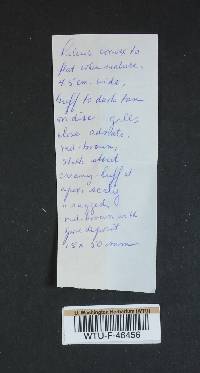 Pileus convex to
flat when mature,
4.5 cm. wide,
buff to dark tan
on disc. gills
close adnate,
red-brown,
stalk stout
creamy-buff at
apex, scaly
red-brown with
spore deposit
15 x 50 mm
U. Washington Herbarium (WTU)
WTU-F-46456